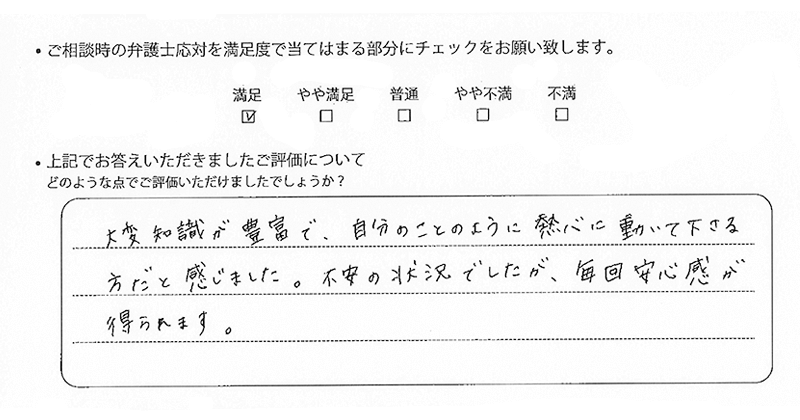 ・ご相談時の弁護士応対を満足度で当てはまる部分にチェックをお願い致します。
満足 やや満足 普通 やや不満 不満
☑ ☐ ☐ ☐ ☐
・上記でお答えいただきましたご評価について
どのような点でご評価いただけましたでしょうか？
大変知識が豊富で、自分のことのように熱心に動いて下さる
方だと感じました。不安の状況でしたが、毎回安心感が
得られます。